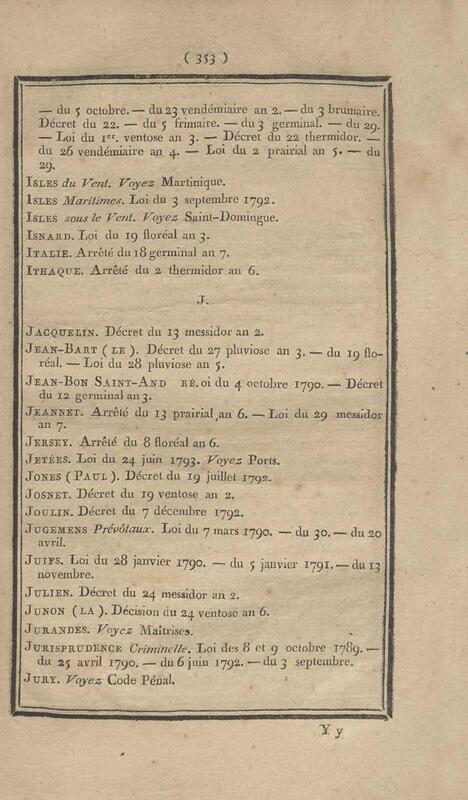 ( 353 )
— du 5 octobre. — du 23 vendémiaire an 2. — du 3 brumaire.
Décret du 22. — du 5 frimaire. — du 3 germinal. — du 29.
— Loi du 1er. ventose an 3. — Décret du 22 thermidor. —
du 26 vendémiaire an 4. — Loi du 2 prairial an 5. — du
29.
ISLES du Vent. Voyez Martinique.
ISLES Maritimes. Loi du 3 septembre 1792.
ISLES sous le Vent. Voyez Saint-Domingue.
ISNARD. Loi du 19 floréal an 3.
ITALIE. Arrêté du 18 germinal an 7.
ITHAQUE. Arrêté du 2 thermidor an 6.
J.
JACQUELIN. Décret du 13 messidor an 2.
JEAN-BART ( LE ). Décret du 27 pluviose an 3. — du 19 flo-
réal. — Loi du 28 pluviose an 5.
JEAN-BON SAINT-AND RÉ.oi du 4 octobre 1790. — Décret
du 12 germinal an 3.
JEANNET. Arrêté du 13 prairial an 6. — Loi du 29 messidor
an 7.
JERSEY. Arrêté du 8 floréal an 6.
JETÉES. Loi du 24 juin 1793. Voyez Ports.
JONES ( PAUL ). Décret du 19 juillet 1792.
JOSNET. Décret du 19 ventose an 2.
JOULIN. Décret du 7 décembre 1792.
JUGEMENS Prévôtaux. Loi du 7 mars 1790. — du 30. — du 20
avril.
JUIFS. Loi du 28 janvier 1790. — du 5 janvier 1791. — du 13
novembre.
JULIEN. Décret du 24 messidor an 2.
JUNON ( LA ). Décision du 24 ventose an 6.
JURANDES. Voyez Maîtrises.
JURISPRUDENCE Criminelle. Loi des 8 et 9 octobre 1789. —
du 25 avril 1790. — du 6 juin 1792. — du 3 septembre.
JURY. Voyez Code Pénal.
Y y